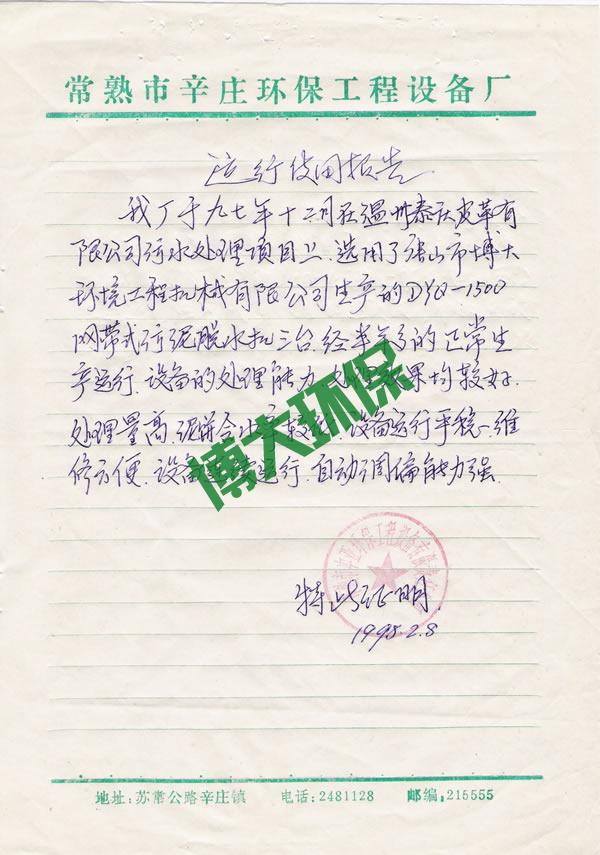 常熟市辛庄环保工程设备厂
运行使用报告
我厂于九七年十二月在温州泰庆皮革有
限公司污水处理项目上.选用了唐山市博大
环境工程机械有限公司生产的DYQ-1500
网带式污泥脱水机三台.经半年多的正常生
产运行.设备的处理能力.处理效果均较好.
处理量高.泥饼含水率较低.设备运行平稳.维
修方便.设备连续运行.自动调偏能力强.
博大环保
特此证明.
1998.2.8
地址:苏常公路辛庄镇 电话:2481128 邮编:215555